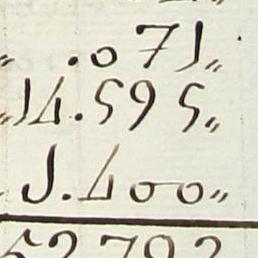 .071„
14.595„
1.400„
52792